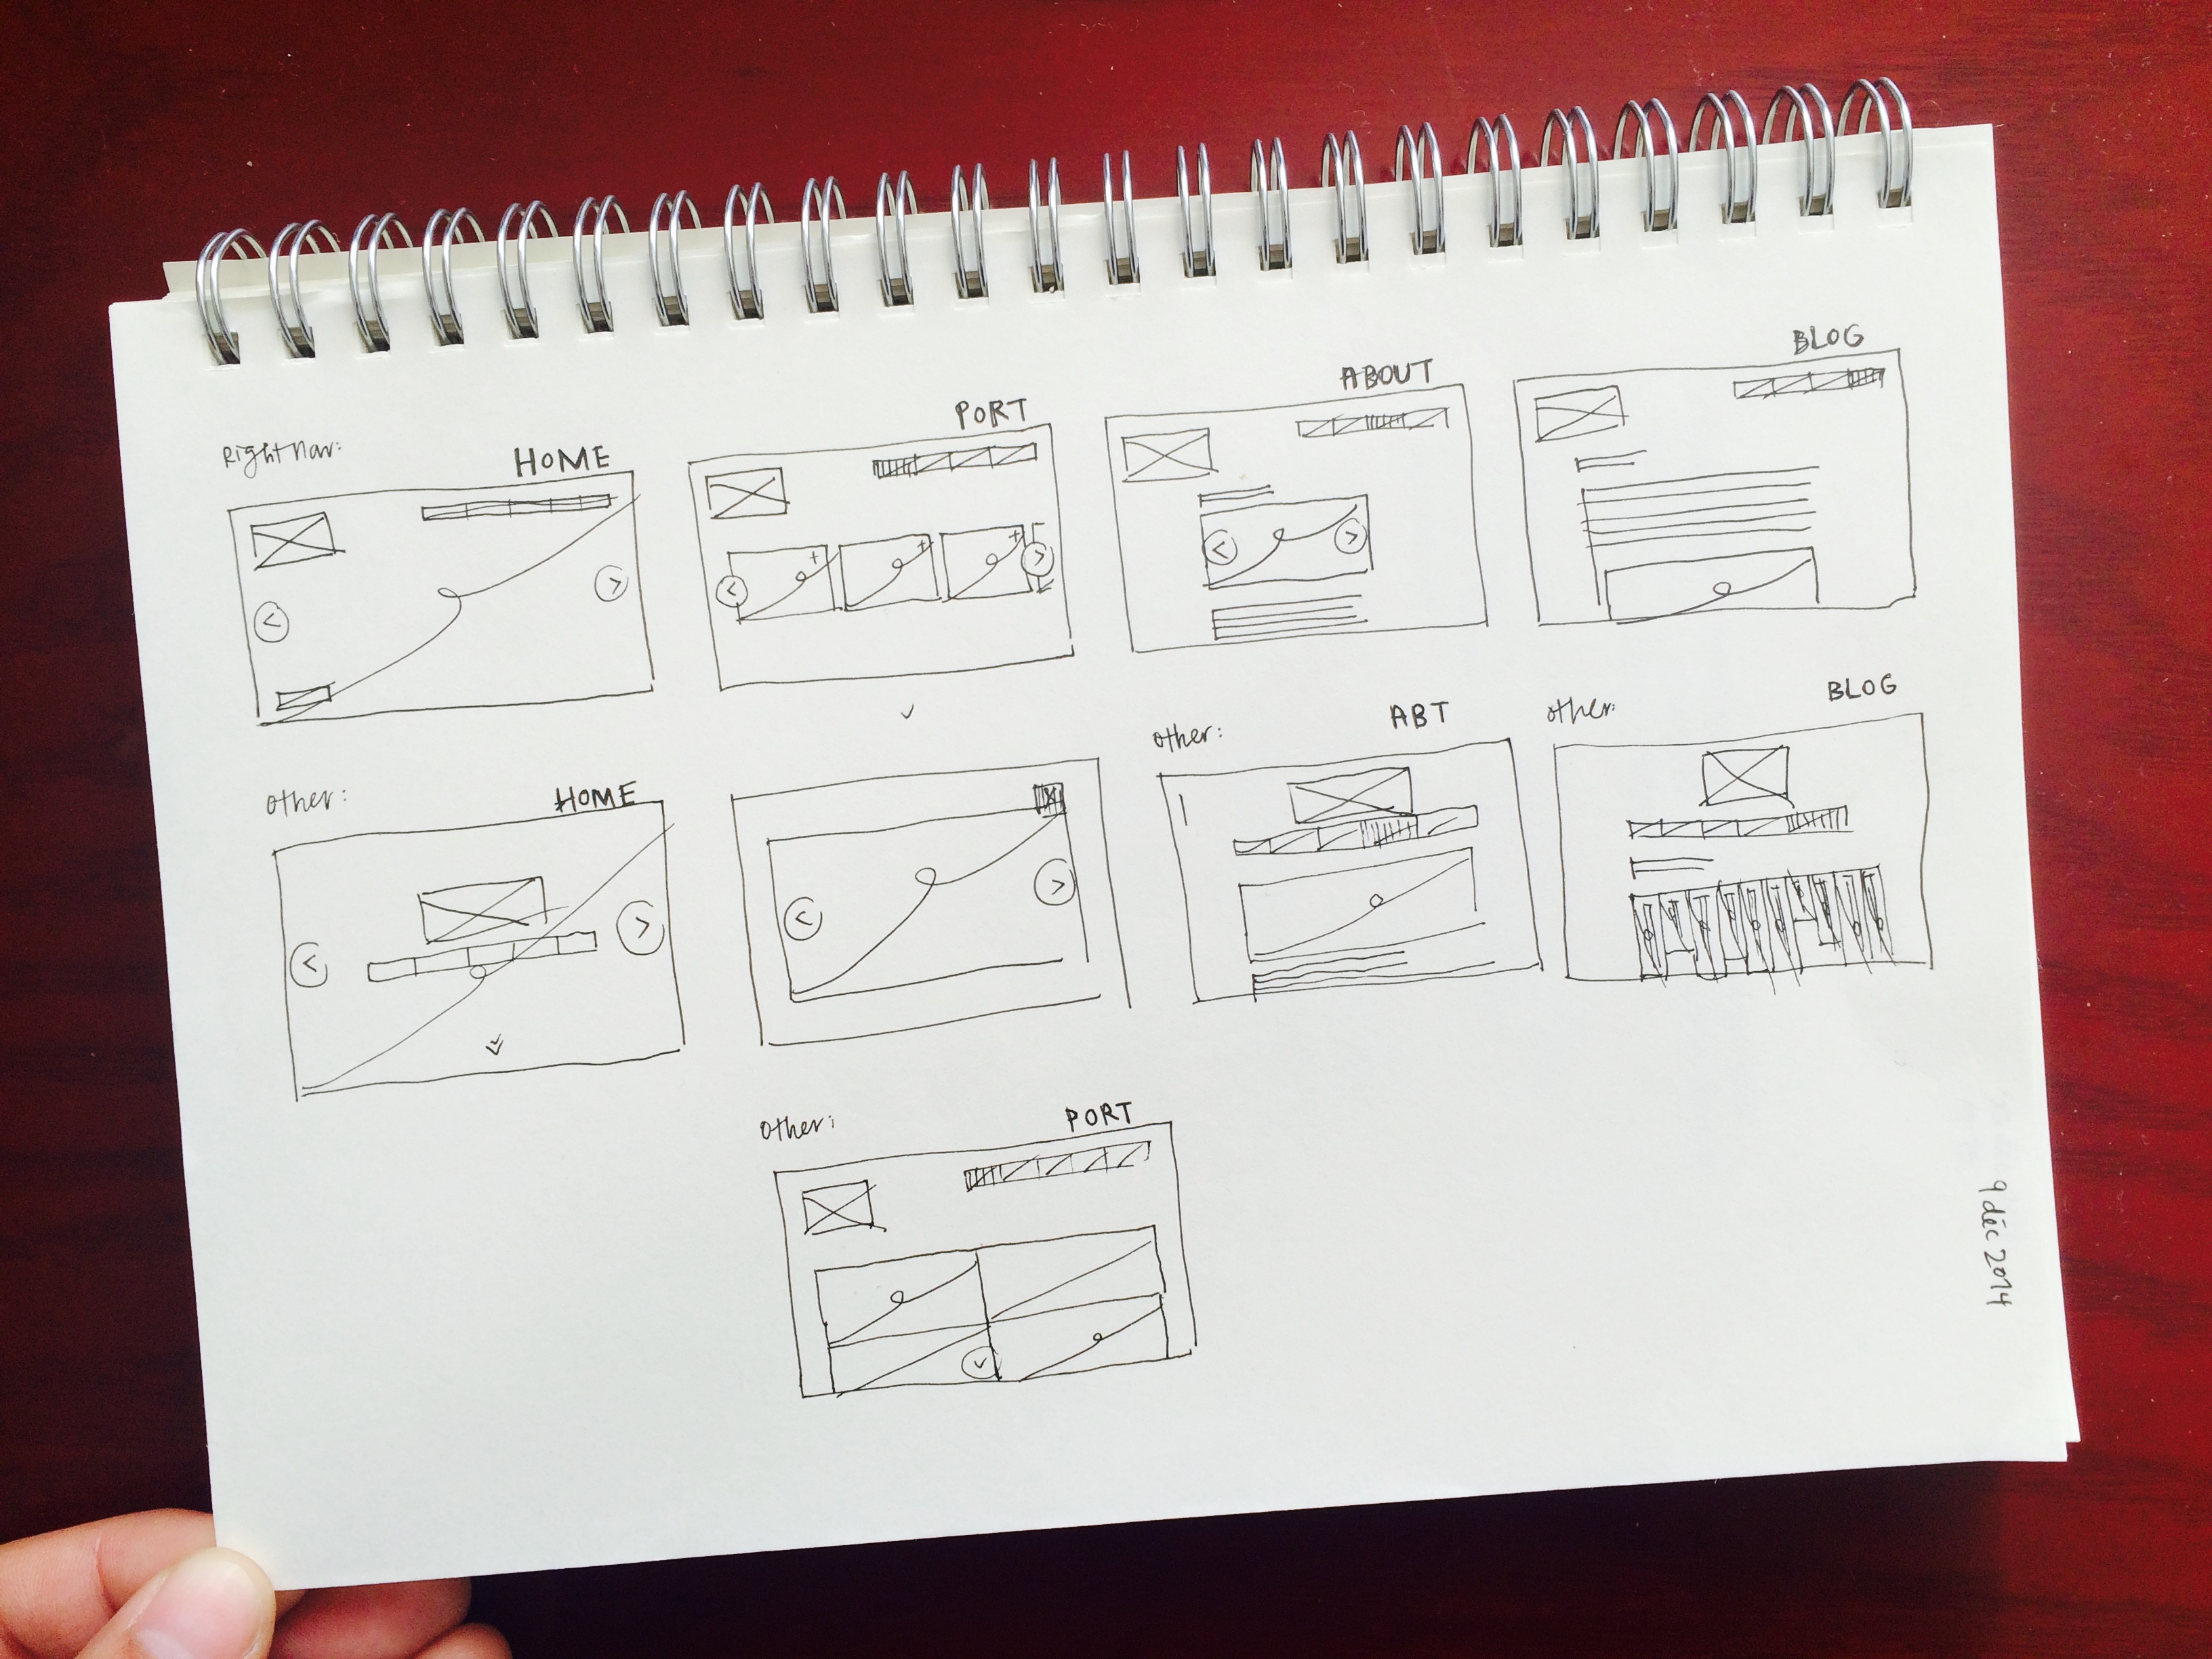 Right Nav:
HOME
PORT
ABOUT
BLOG
other:
HOME
other:
ABT
other:
BLOG
other:
PORT
9 déc 2014